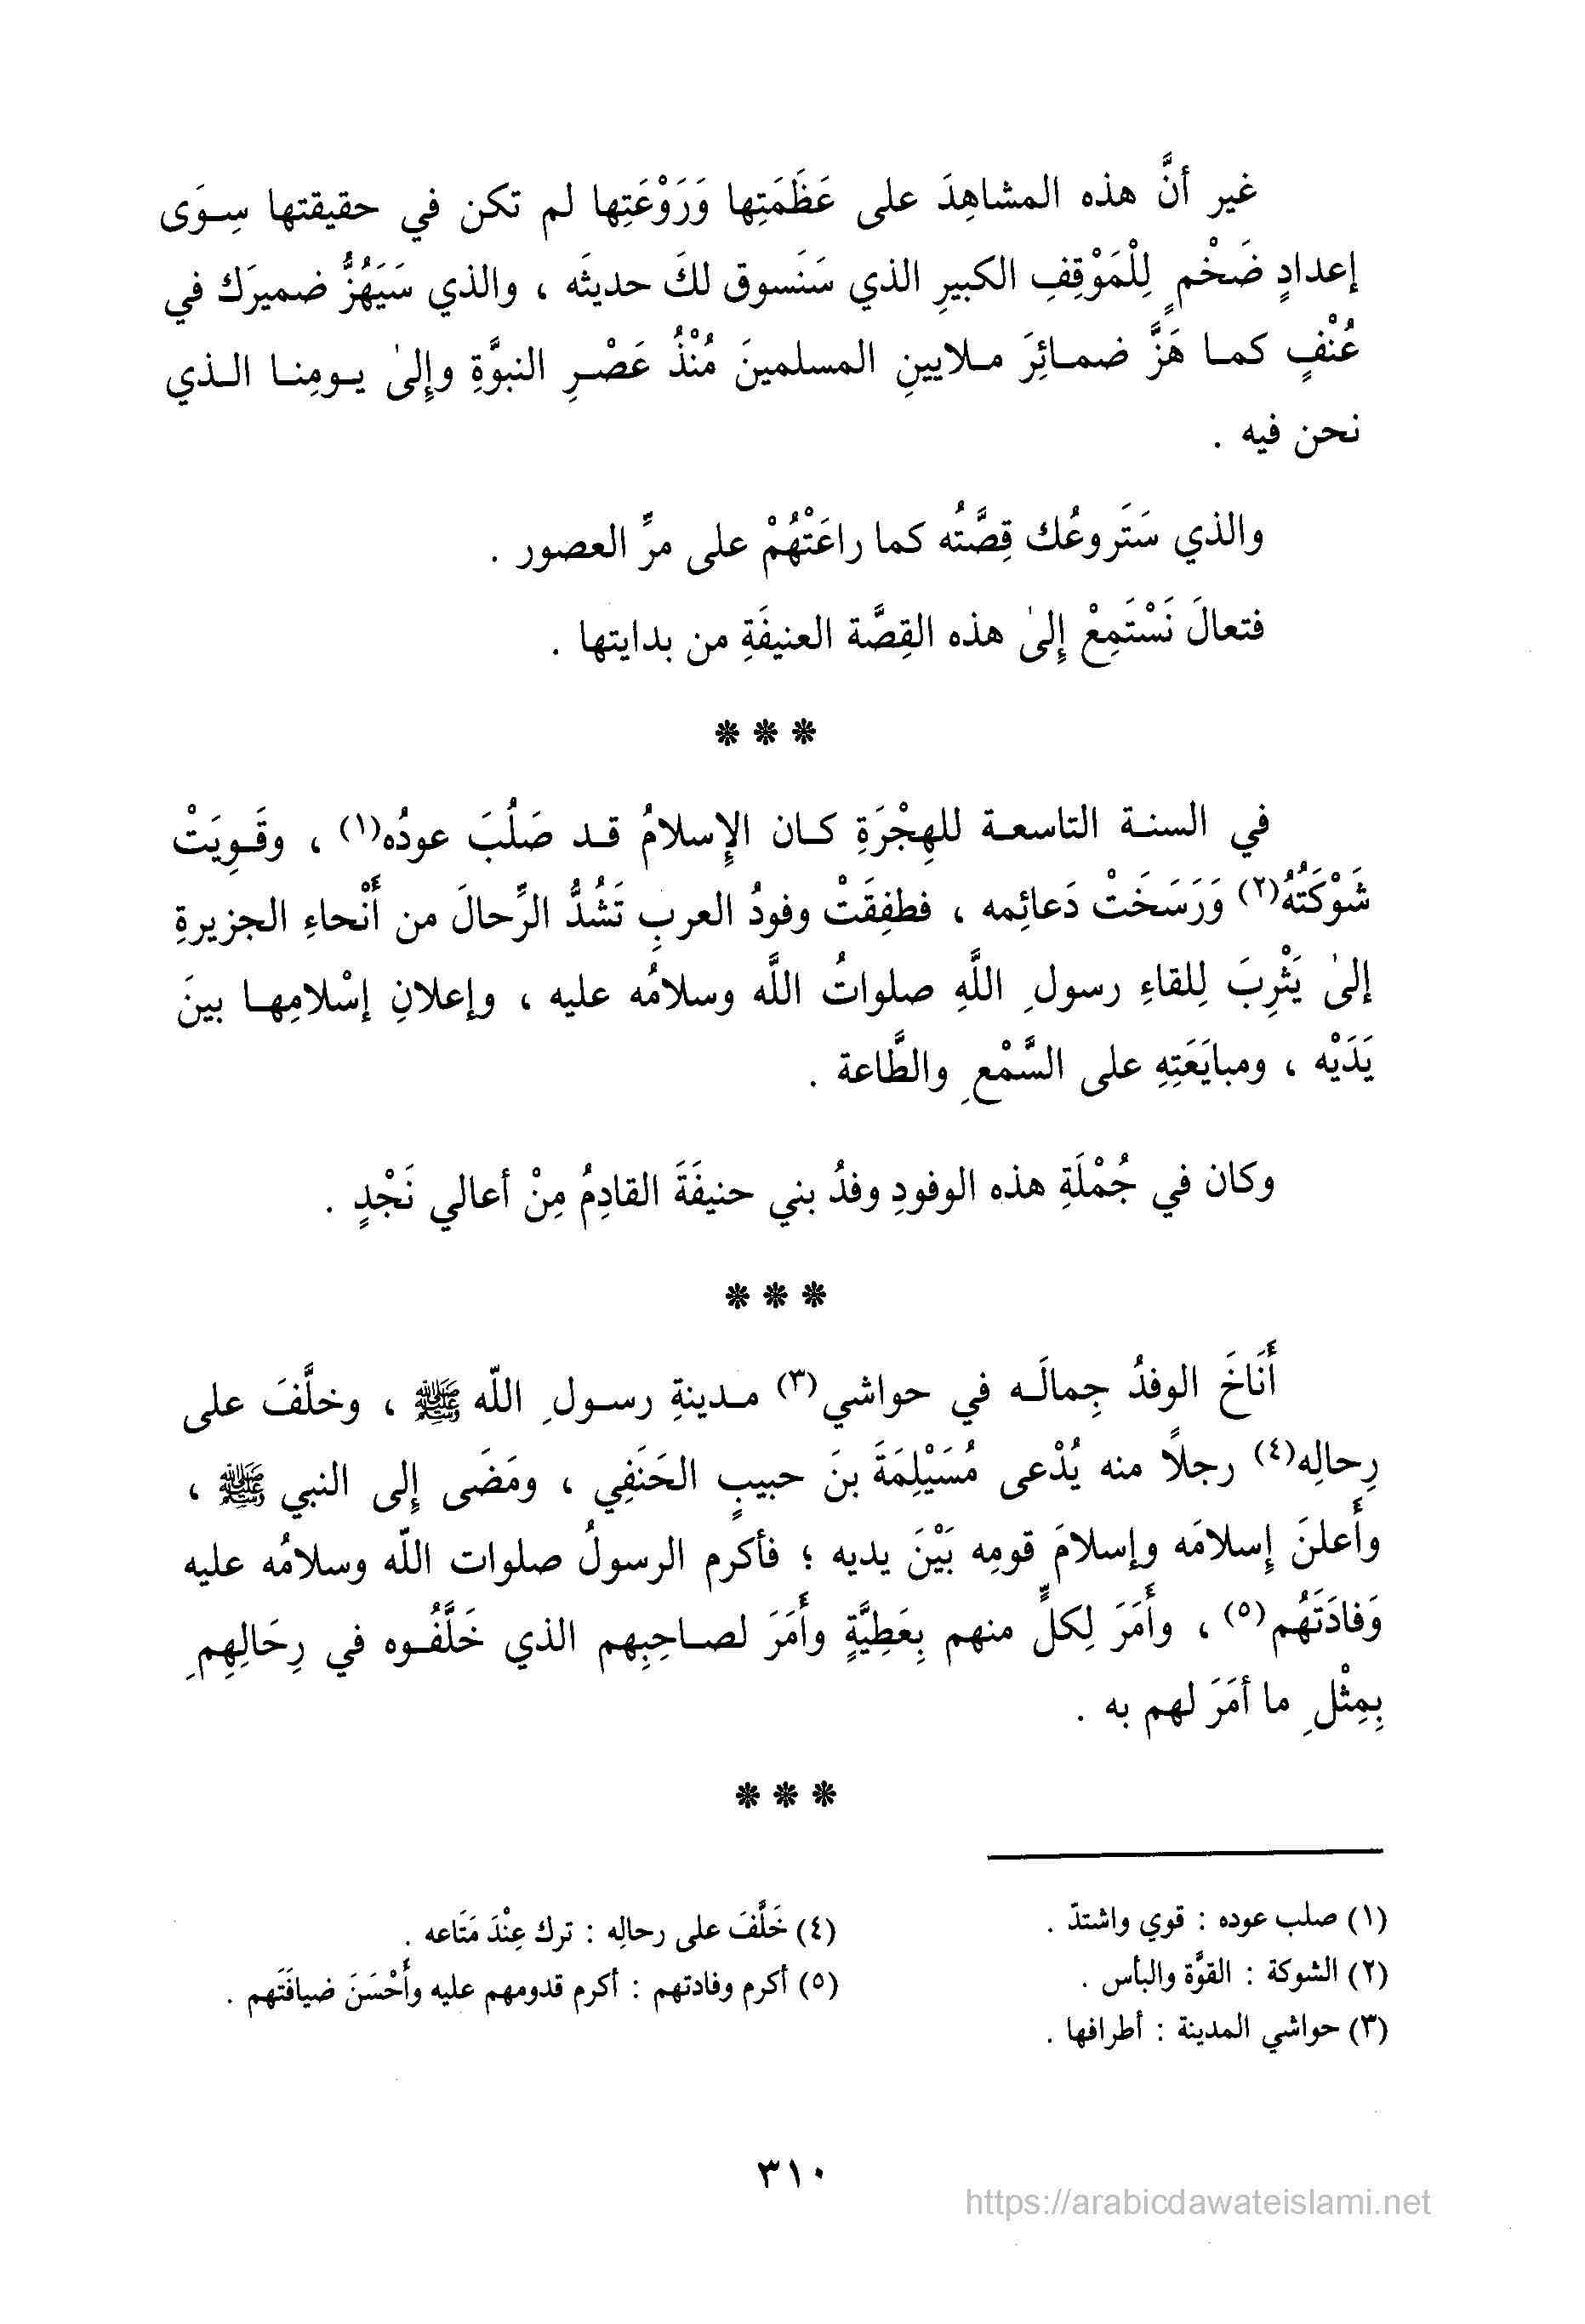 غير أنَّ هذه المشاهِدَ على عَظَمَتِها وَرَوْعَتِها لم تكن في حقيقتها سِوَى
إعدادٍ ضَخْمٍ لِلْمَوْقِفِ الكبيرِ الذي سَنَسوق لكَ حديثَه ، والذي سَيَهُزُّ ضميرَك في
عُنْفٍ كما هَزَّ ضمائِرَ ملايينِ المسلمينَ مُنْذُ عَصْرِ النبوَّةِ وإِلىٰ يومِنا الذي
نحن فيه .
والذي سَتَروعُك قِصَّتُه كما راعَتْهُمْ على مرِّ العصور .
فتعالَ نَسْتَمِعْ إِلىٰ هذه القِصَّة العنيفَةِ من بدايتها .
***
في السنة التاسعة للهِجْرَةِ كان الإِسلامُ قد صَلُبَ عودُه(١) ، وقَوِيَتْ
شَوْكَتُهُ(٢) وَرَسَخَتْ دَعائِمه ، فطفِقَتْ وفودُ العربِ تَشُدُّ الرِّحالَ من أَنْحاءِ الجزيرةِ
إلىٰ يَثْرِبَ لِلقاءِ رسولِ اللَّهِ صلواتُ اللَّه وسلامُه عليه ، وإعلانِ إسْلامِها بينَ
يَدَيْه ، ومبايَعَتِهِ على السَّمْعِ والطَّاعة .
وكان في جُمْلَةِ هذه الوفودِ وفدُ بني حنيفَةَ القادِمُ مِنْ أعالي نَجْدٍ .
***
أَنَاخَ الوفدُ جِمالَه في حواشي(٣) مدينةِ رسولِ اللّه ﷺ ، وخلَّفَ على
رِحالِه(٤) رجلًا منه يُدْعى مُسَيْلِمَةَ بنَ حبيبٍ الحَنَفِي ، ومَضَى إِلى النبي ﷺ ،
وأَعلنَ إِسلامَه وإسلامَ قومِه بَيْنَ يديه ؛ فأكرم الرسولُ صلوات اللّه وسلامُه عليه
وَفادَتَهُم(٥) ، وأَمَرَ لِكلٍّ منهم بِعَطِيَّةٍ وأَمَرَ لصاحِبِهم الذي خَلَّفُوه في رِحَالِهِمِ
بِمِثْلِ ما أمَرَ لهم به .
***
(١) صلب عوده : قوي واشتدّ .
(٢) الشوكة : القوَّة والبأس .
(٣) حواشي المدينة : أطرافها .
(٤) خَلَّفَ على رحالِه : ترك عِنْدَ مَتَاعه .
(٥) أكرم وفادتهم : أكرم قدومهم عليه وأَحْسَنَ ضيافَتَهم .
٣١٠
https://arabicdawateislami.net